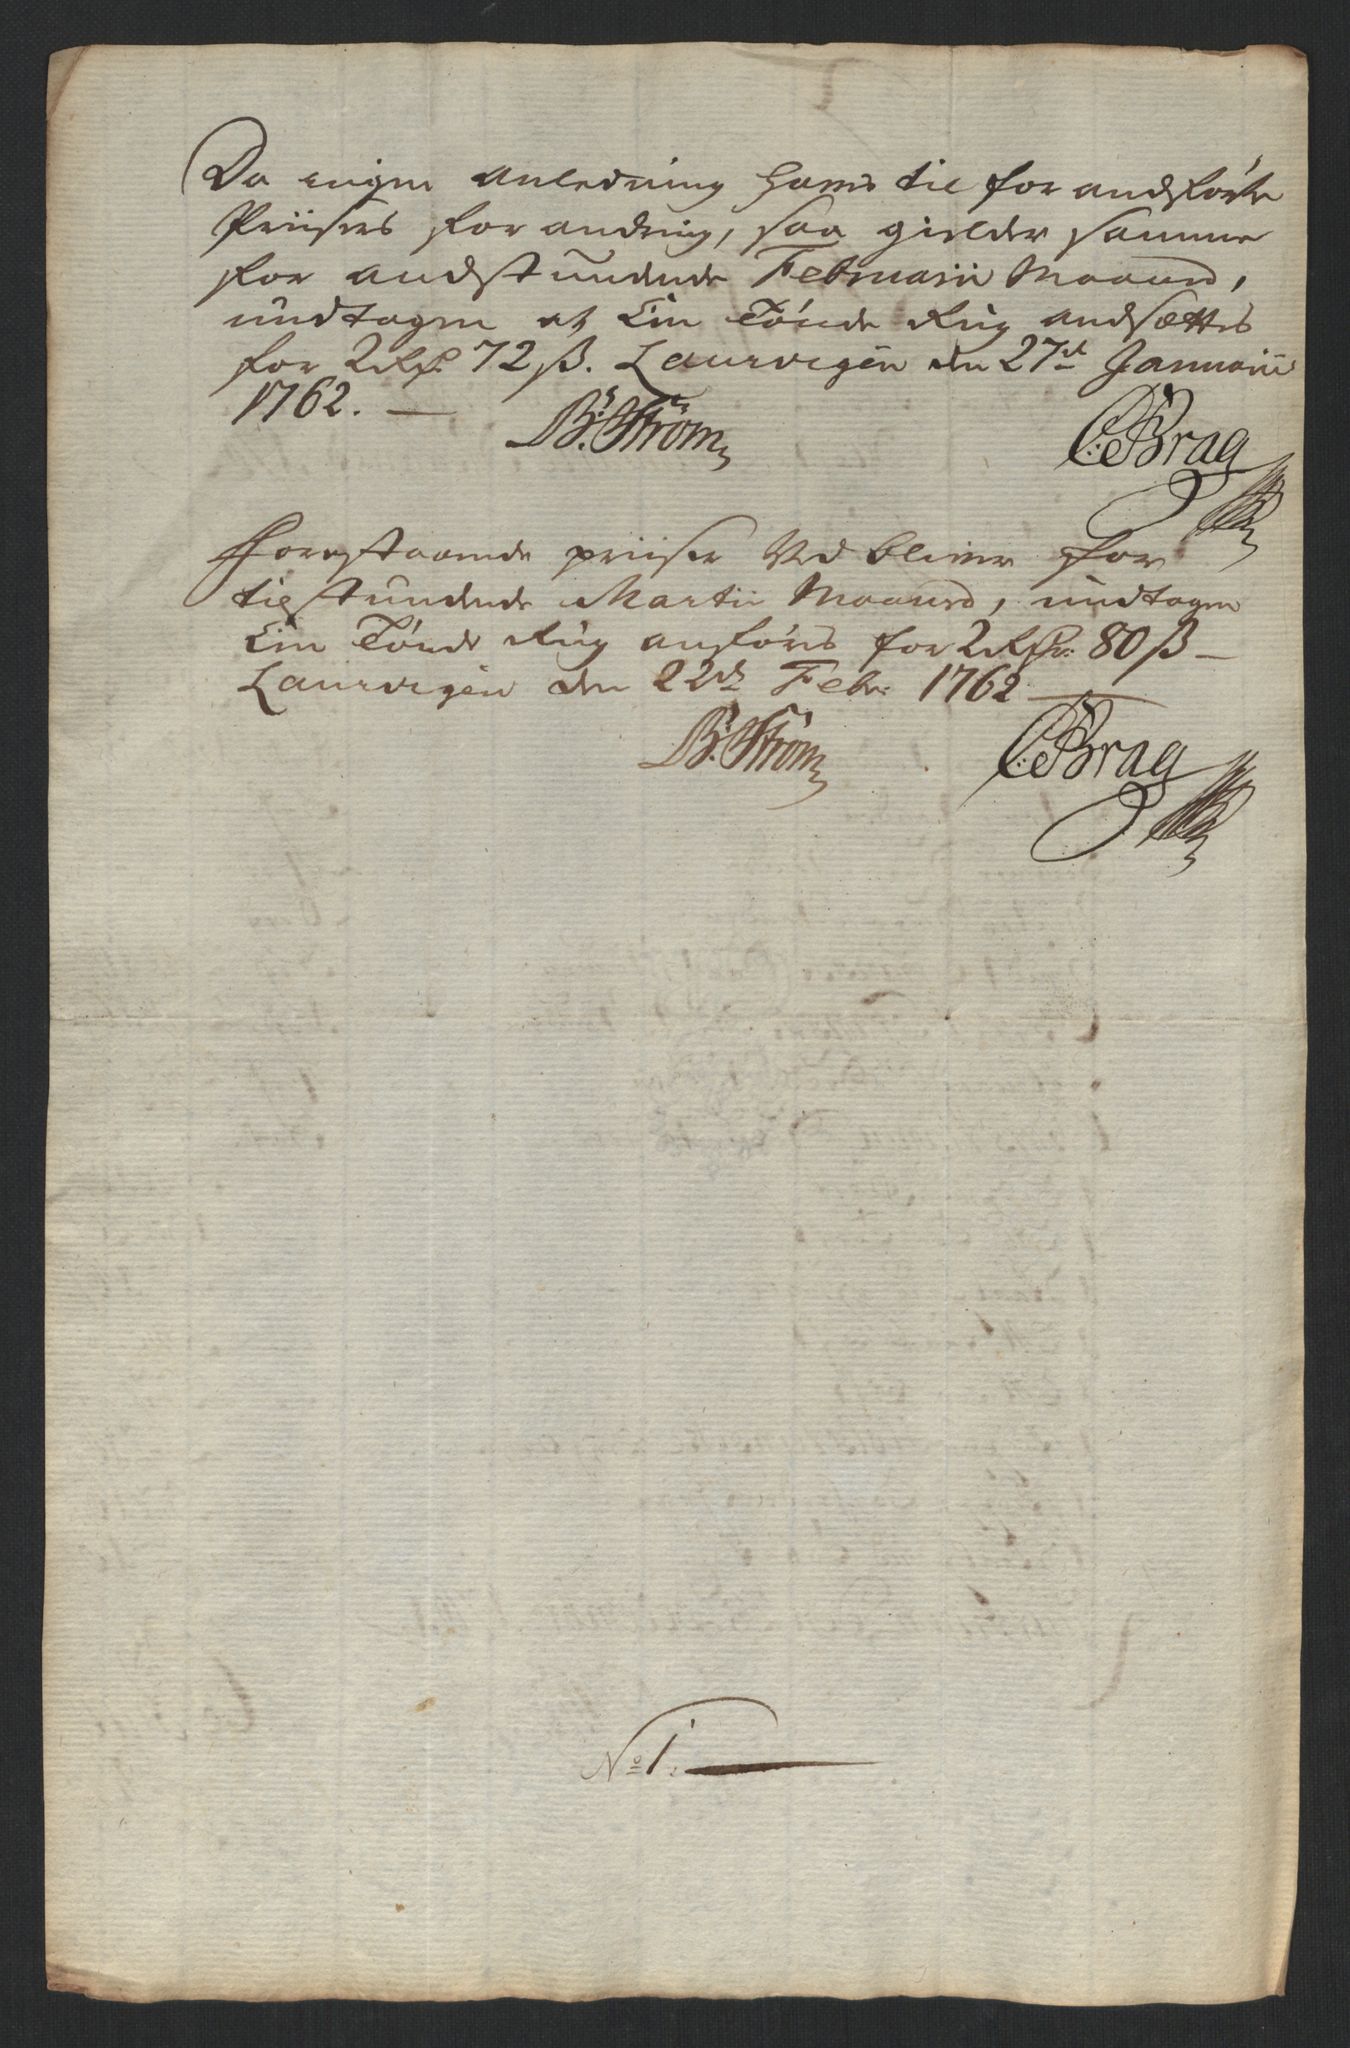 Da ingen anledning haves til forandførte
Priisers forandring, saa gielder samme
for andstundende Februarii Maaned,
undtagen at Een Tønde Rug andsættes
for 2 Rd. 72 ß. Laurvigen den 27de Januarii
1762. —
B: Strøm
C: Brag
Forestaaende priiser Vedbliver for
tilstundende Martii Maaned, undtagen
Een Tønde Rug anføres for 2 Rdr: 80 ß —
Laurvigen den 22de Febr: 1762 —
B: Strøm
C: Brag
No 1. —